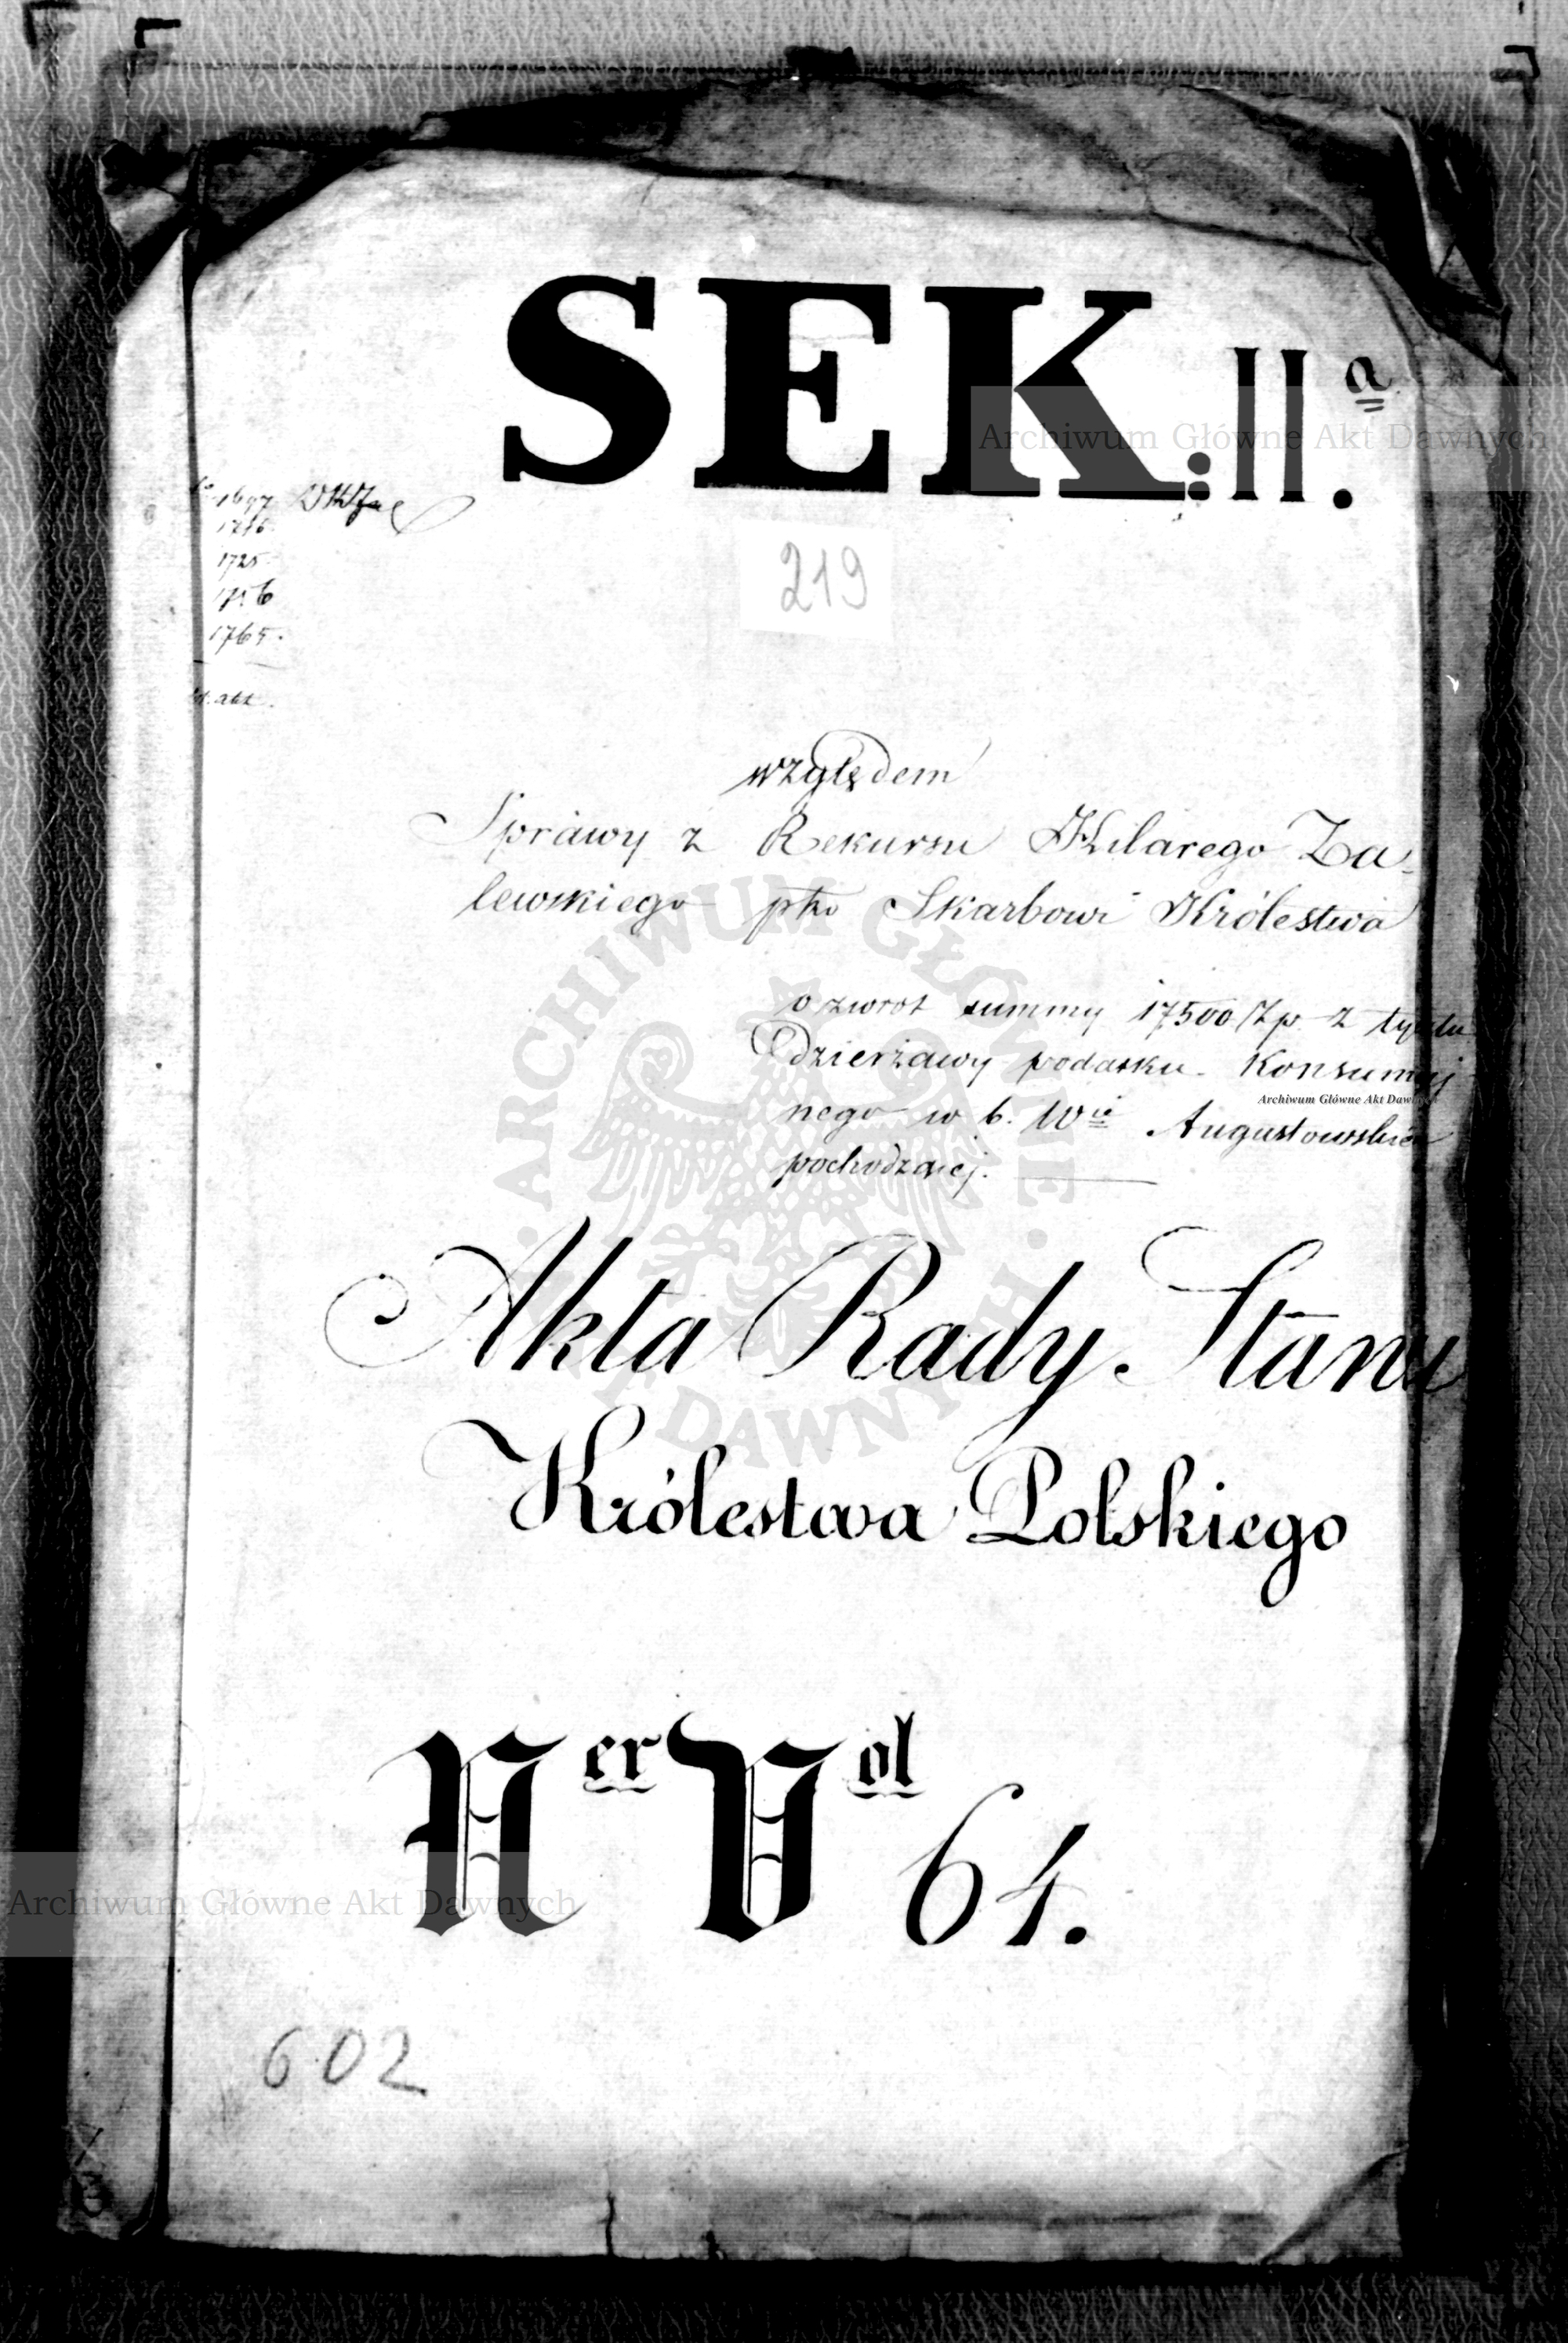 SEK: II. a
Archiwum Główne Akt Dawnych
1697
1716
1725
1756
1765.
219
względem
Sprawy z Rekursu Hilarego Za-
lewskiego pko Skarbowi Królestwa
o zwrot summy 17500 Zp. z tytułu
Dzierżawy podatku Konsumcyj
Archiwum Główne Akt Dawnych
nego w b. Wie Augustowskiem
pochodzącej.
ARCHIWUM GŁÓWNE AKT DAWNYCH
Akta Rady Stanu
Królestwa Polskiego
Ner Vol 64.
Archiwum Główne Akt Dawnych
602